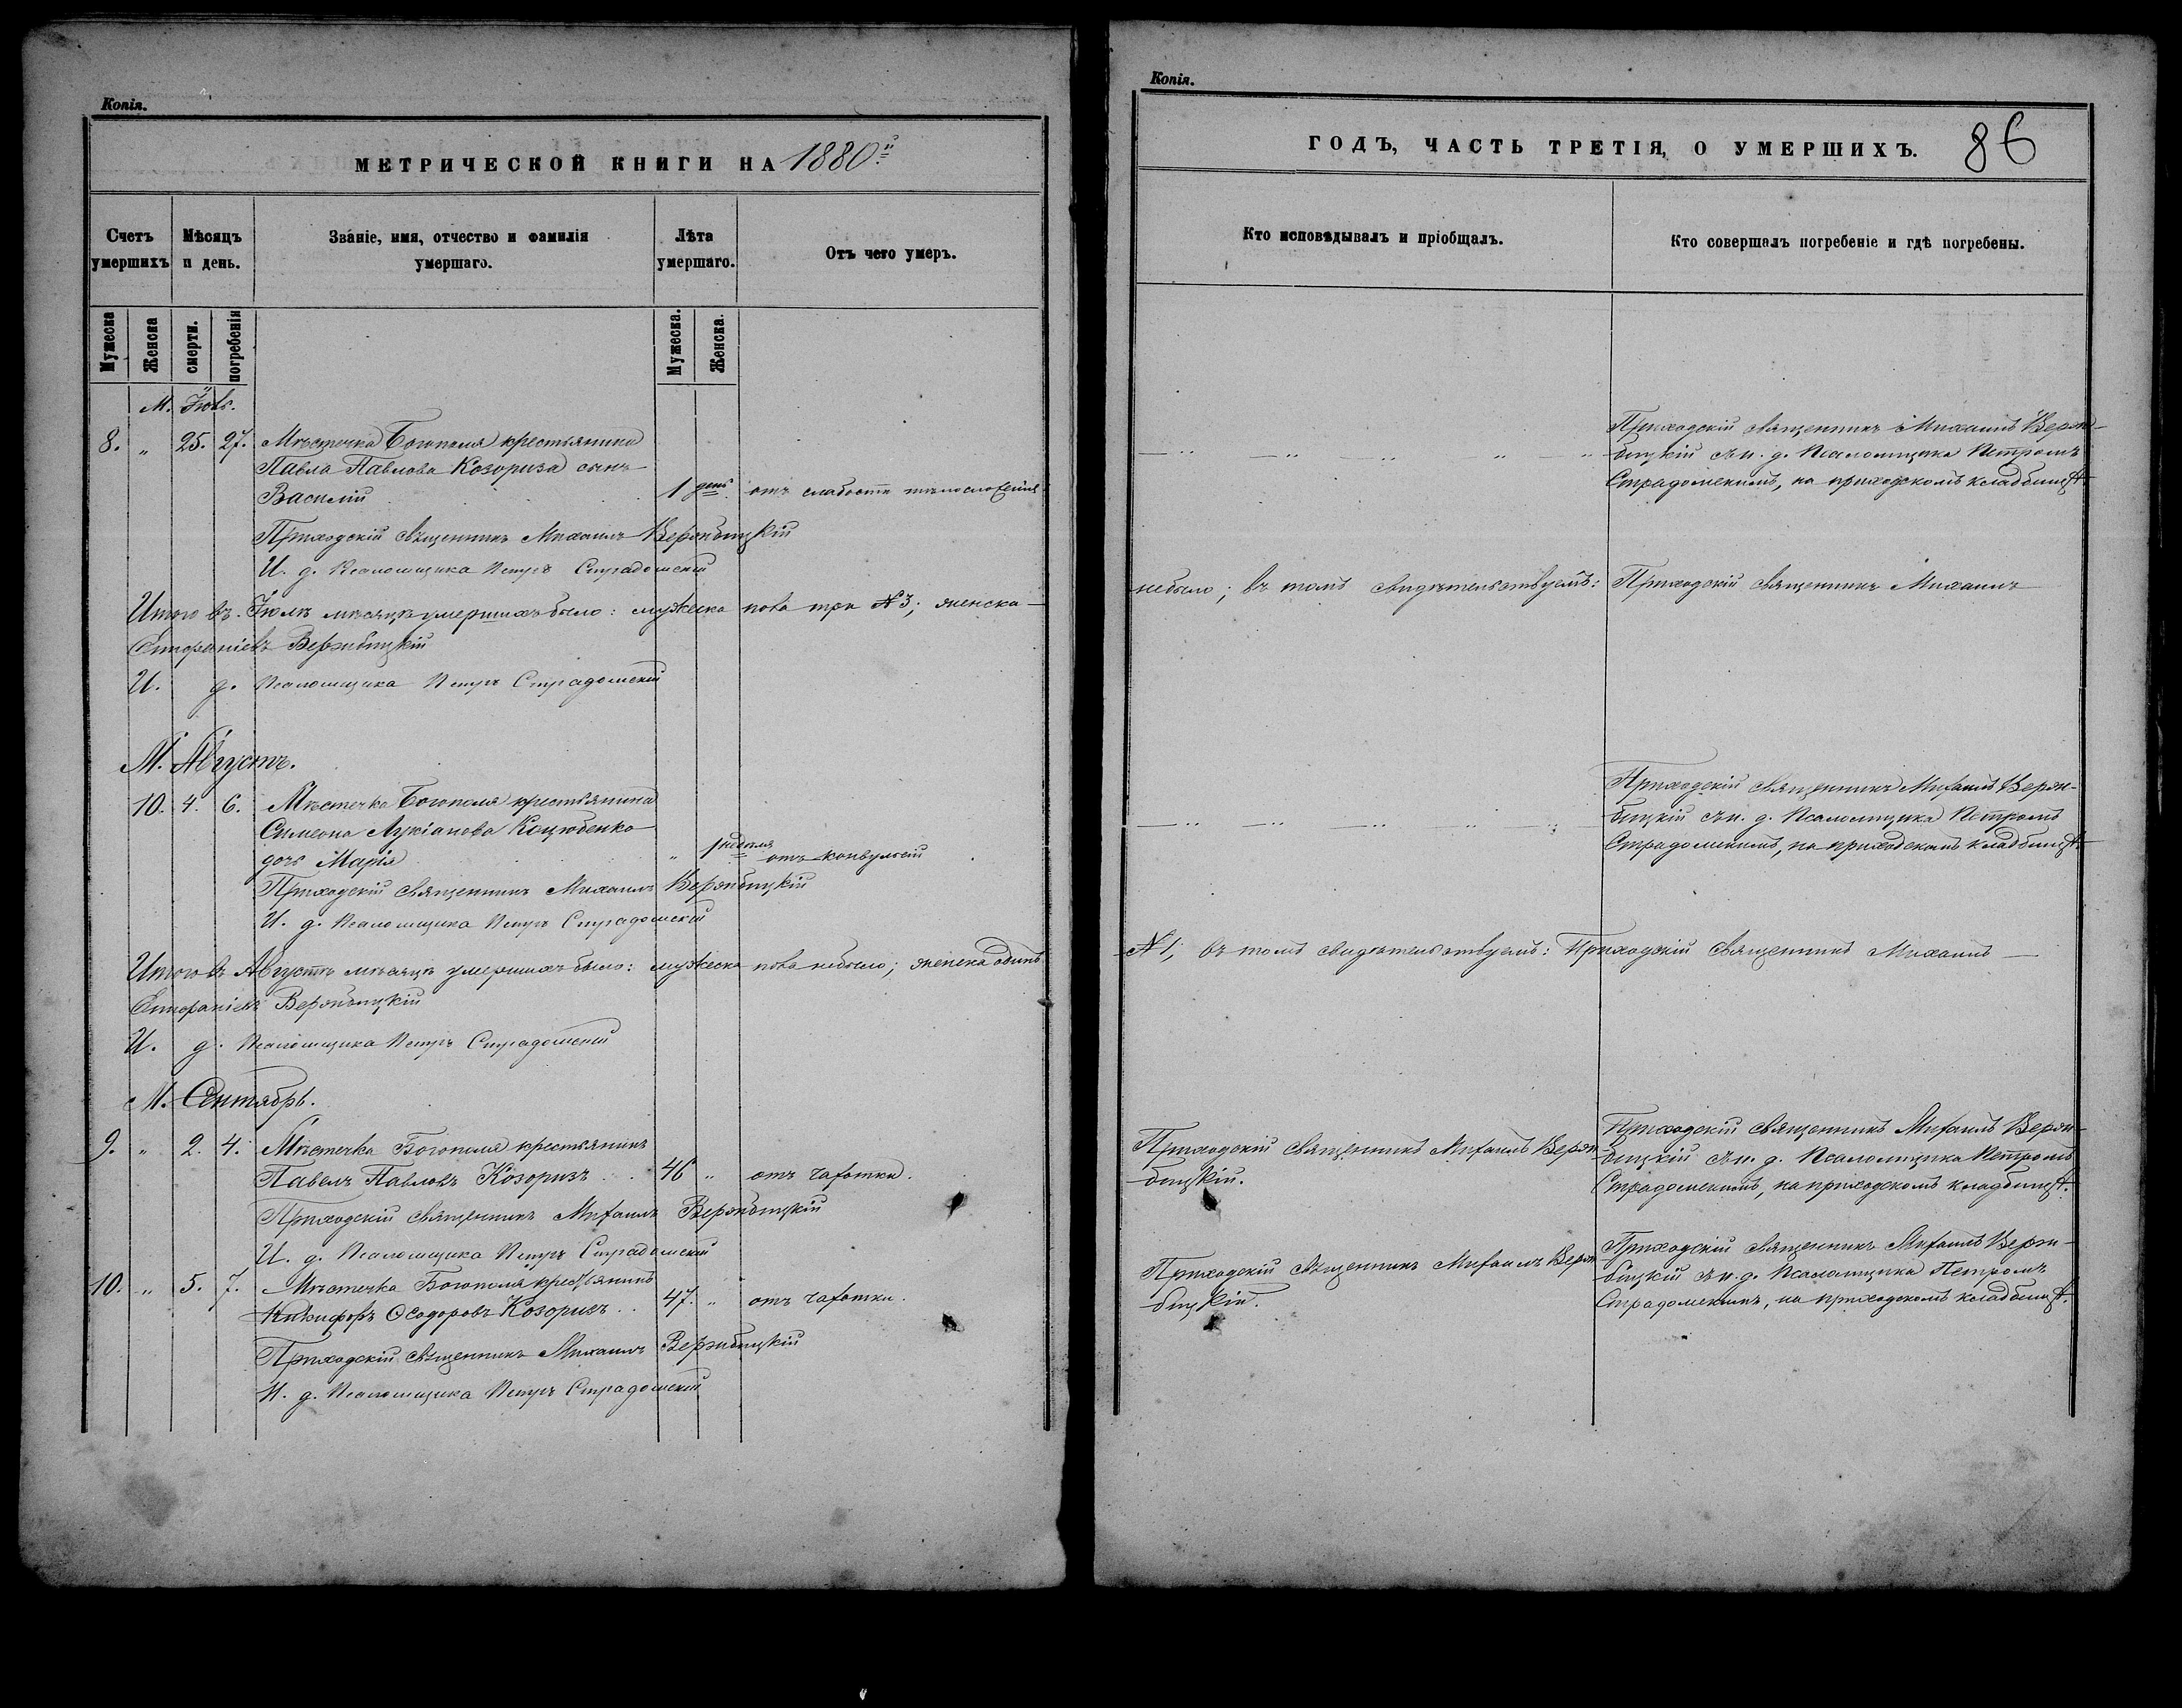 Копія.
МЕТРИЧЕСКОЙ КНИГИ НА 1880й
Счетъ умершихъ
Мѣсяцъ и день.
Званіе, имя, отчество и фамилія умершаго.
Лѣта умершаго.
Отъ чего умеръ.
Мужеска
Женска
смерти.
погребенія
Мужеска.
Женска.
М. Іюль.
8. „ 25. 27. Мѣстечка Богополя крестьянина
Павла Павлова Козориза сынъ
Василій 1 день отъ слабости тѣлосложенія
Приходскій священникъ Михаилъ Вержбицкій
И. д. Псаломщика Петръ Страдомскій
Итого въ Іюлѣ мѣсяцѣ умершихъ было: мужеска пола три №3; женска
Епифаніевъ Вержбицкій
И. д. Псаломщика Петръ Страдомскій
М. Августъ.
10. 4. 6. Мѣстечка Богополя крестьянина
Симеона Лукіанова Коцюбенко
дочь Марія „ 1 недѣля отъ конвульсій
Приходскій священникъ Михаилъ Вержбицкій
И. д. Псаломщика Петръ Страдомскій
Итого въ Августѣ мѣсяцѣ умершихъ было: мужеска пола небыло; женска одинъ
Епифаніевъ Вержбицкій
И. д. Псаломщика Петръ Страдомскій
М. Сентябрь.
9. „ 2. 4. Мѣстечка Богополя крестьянинъ
Павелъ Павловъ Козоризъ 46 „ отъ чахотки.
Приходскій священникъ Михаилъ Вержбицкій
И. д. Псаломщика Петръ Страдомскій
10. „ 5. 7. Мѣстечка Богополя крестьянинъ
Никифоръ Ѳеодоровъ Козоризъ 47. „ отъ чахотки.
Приходскій священникъ Михаилъ Вержбицкій
И. д. Псаломщика Петръ Страдомскій
Копія.
ГОДЪ, ЧАСТЬ ТРЕТІЯ, О УМЕРШИХЪ. 86
Кто исповѣдывалъ и пріобщалъ.
Кто совершалъ погребеніе и гдѣ погребены.
Приходскій священникъ Михаилъ Верж-
бицкій съ и. д. Псаломщика Петромъ
Страдомскимъ, на приходскомъ кладбищѣ
небыло; въ томъ свидѣтельствуемъ: Приходскій священникъ Михаилъ
Приходскій священникъ Михаилъ Верж-
бицкій съ и. д. Псаломщика Петромъ
Страдомскимъ, на приходскомъ кладбищѣ
№1; въ томъ свидѣтельствуемъ: Приходскій священникъ Михаилъ
Приходскій священникъ Михаилъ Верж-
бицкій.
Приходскій священникъ Михаилъ Верж-
бицкій съ и. д. Псаломщика Петромъ
Страдомскимъ, на приходскомъ кладбищѣ.
Приходскій священникъ Михаилъ Верж-
бицкій.
Приходскій священникъ Михаилъ Верж-
бицкій съ и. д. Псаломщика Петромъ
Страдомскимъ, на приходскомъ кладбищѣ.